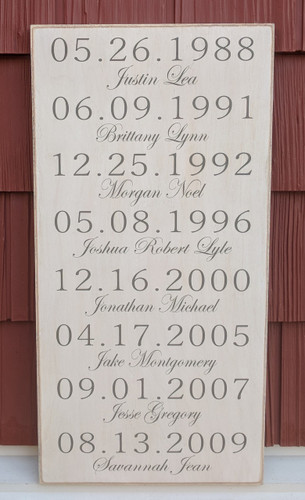 05.26.1988
Justin Lea
06.09.1991
Brittany Lynn
12.25.1992
Morgan Noel
05.08.1996
Joshua Robert Lyle
12.16.2000
Jonathan Michael
04.17.2005
Jake Montgomery
09.01.2007
Jesse Gregory
08.13.2009
Savannah Jean